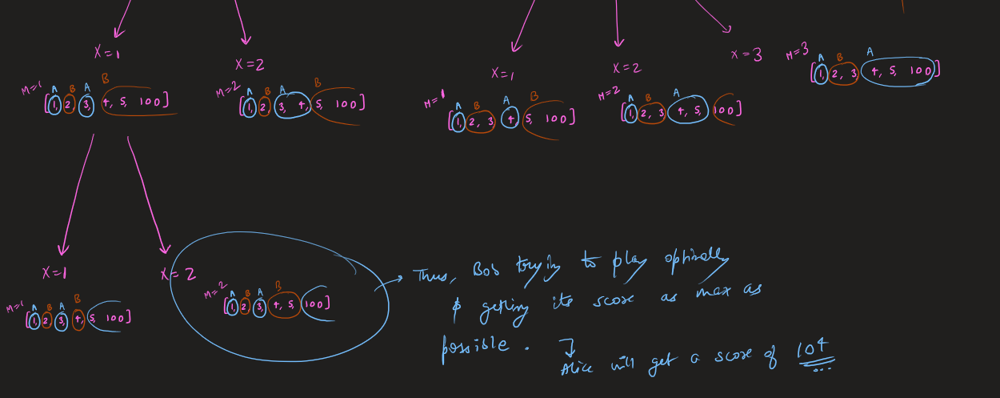 X=1
X=2
X=1
X=2
X=3
M=1
A B A B
[1, 2, 3, 4, 5, 100]
M=2
A B A B
[1, 2, 3, 4, 5, 100]
M=1
A B A B
[1, 2, 3, 4, 5, 100]
M=2
A B A
[1, 2, 3, 4, 5, 100]
M=3
A B A
[1, 2, 3, 4, 5, 100]
X=1
X=2
M=1
A B A B
[1, 2, 3, 4, 5, 100]
M=2
A B A B
[1, 2, 3, 4, 5, 100]
Thus, Bob trying to play optimally
& getting its score as max as
possible.
Alice will get a score of 104